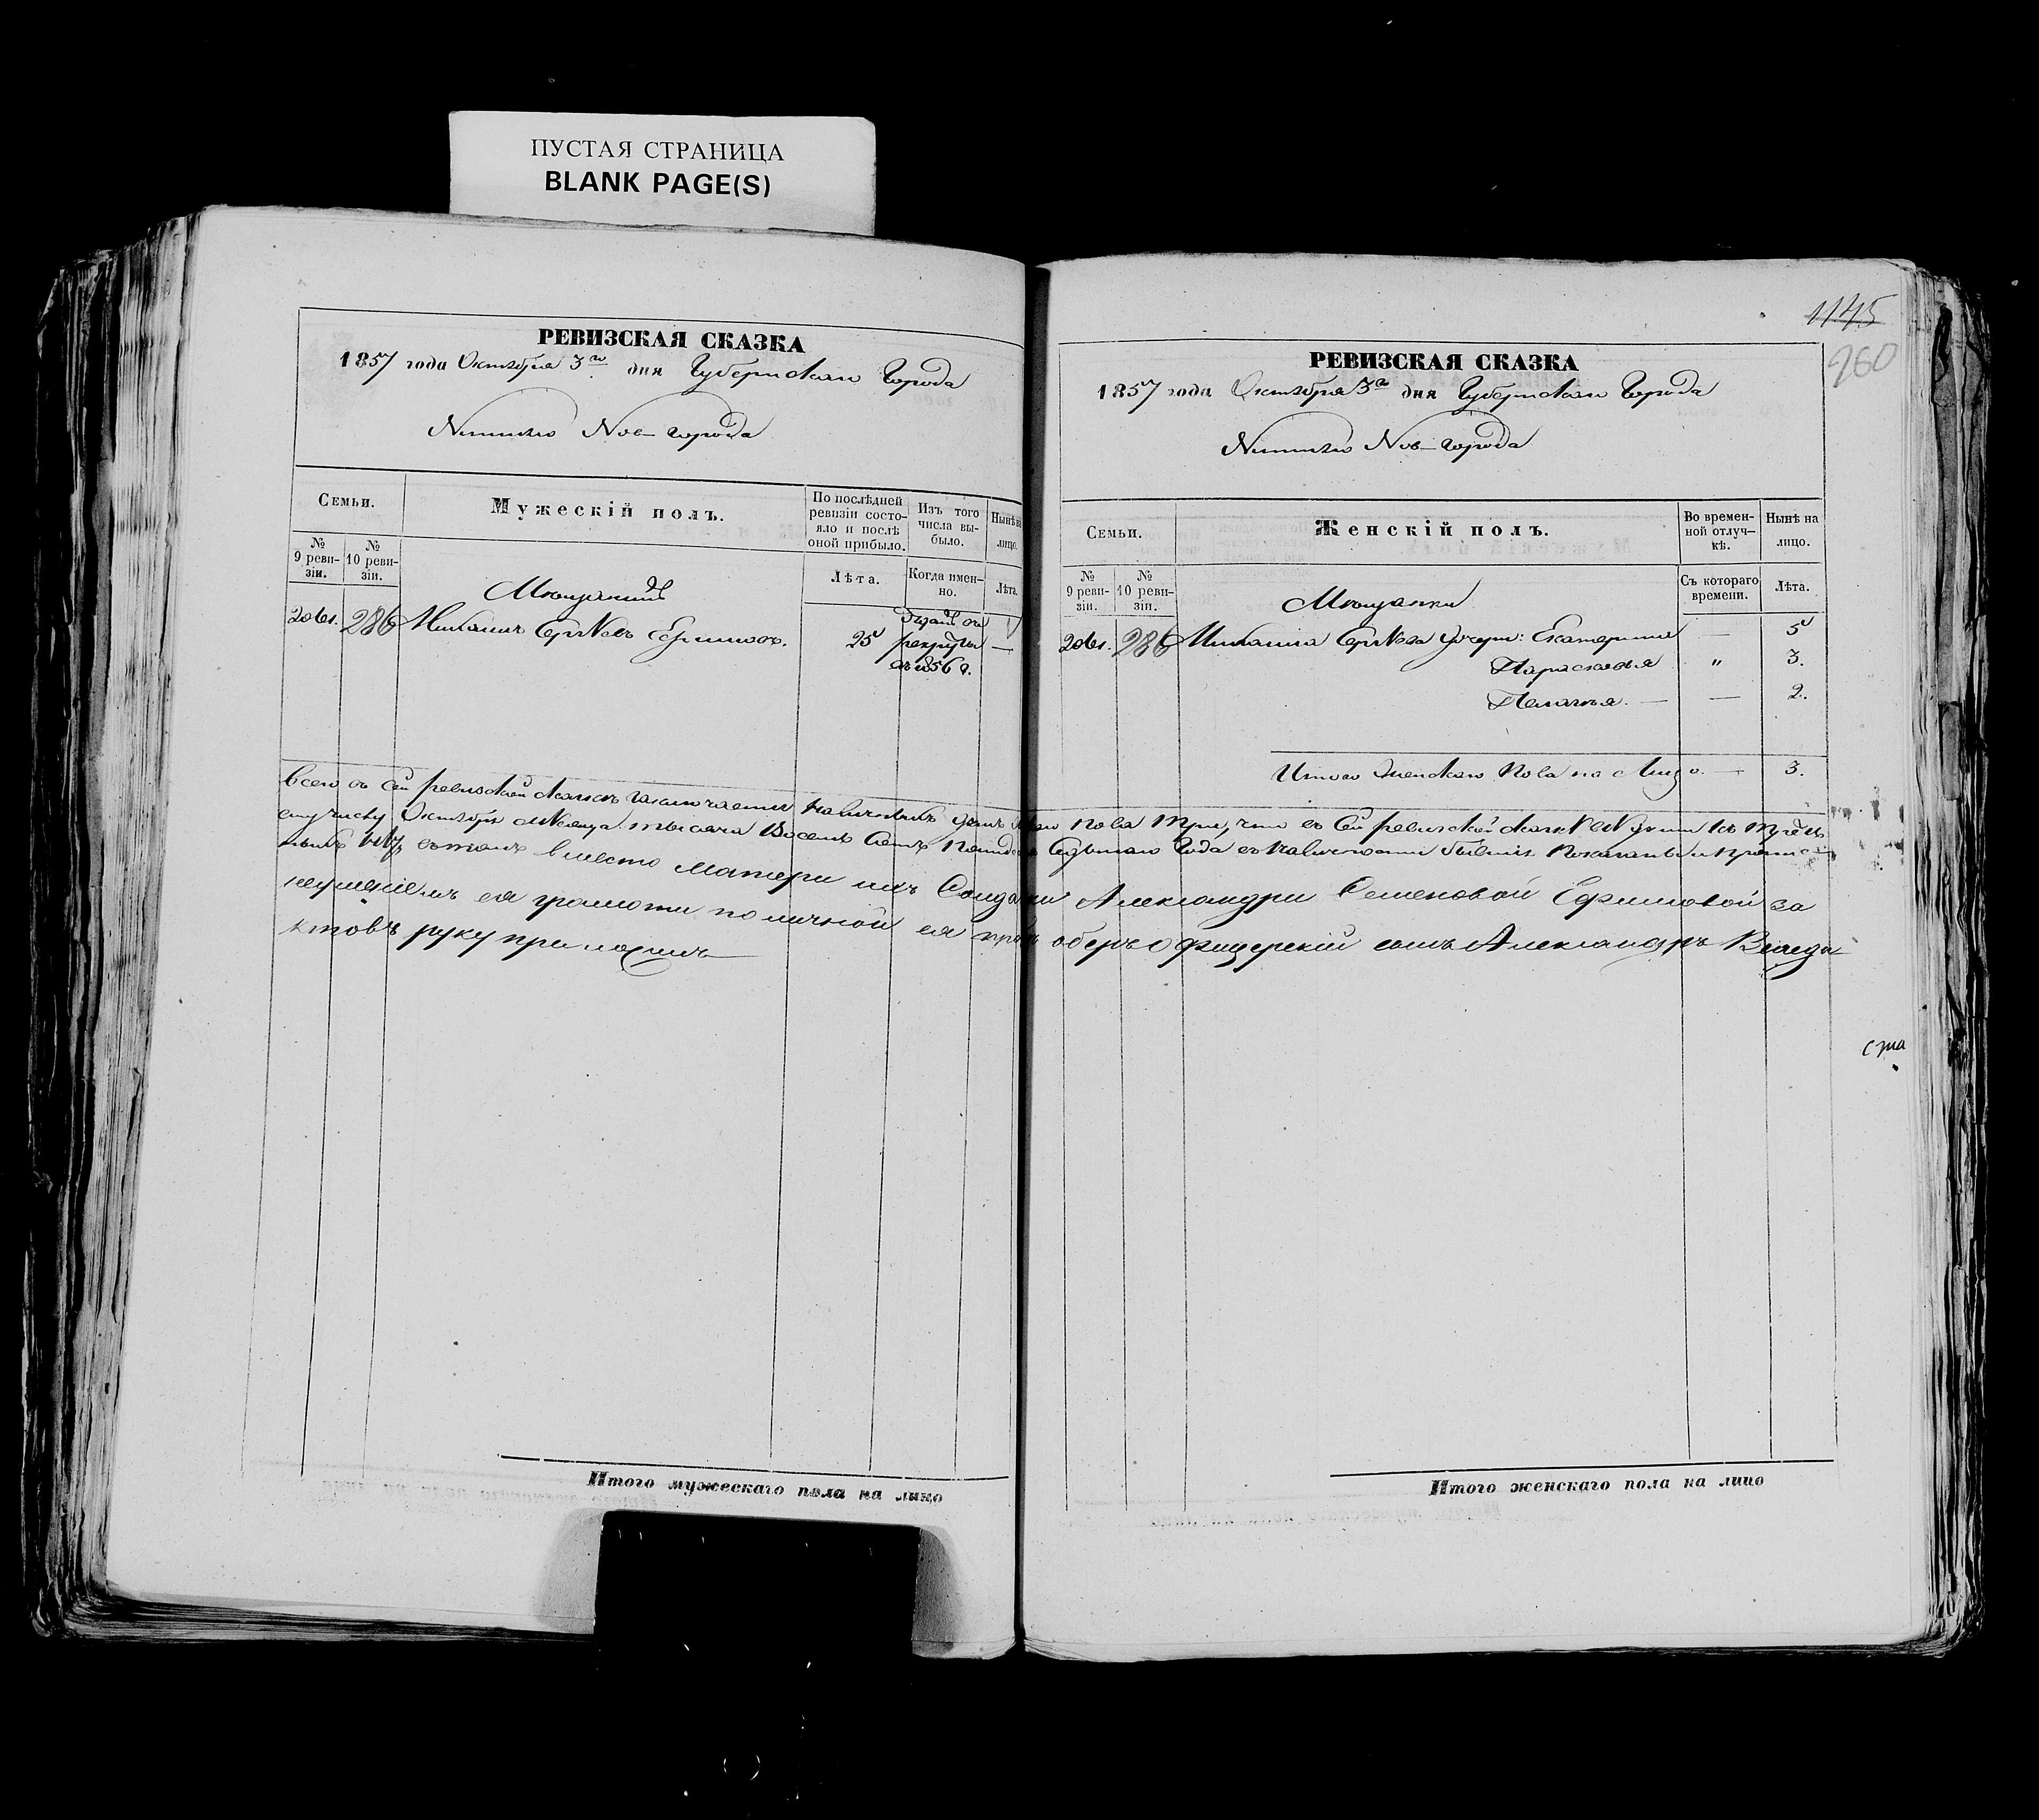 ПУСТАЯ СТРАНИЦА
BLANK PAGE(S)
РЕВИЗСКАЯ СКАЗКА
1857 года Октября 3го дня Губернскаго Города
Нижняго Нов-города
Семьи.
Мужескій полъ.
По послѣдней ревизіи состояло и послѣ оной прибыло.
Изъ того числа выбыло.
Нынѣ на лицо.
№ 9 ревизіи.
№ 10 ревизіи.
Лѣта.
Когда именно.
Лѣта.
Мѣщанинъ
286 Михаилъ Сергѣевъ Ефимовъ. 25 отданъ въ рекруты въ 1856 г. —
1145
260
РЕВИЗСКАЯ СКАЗКА
1857 года Октября 3го дня Губернскаго Города
Нижняго Нов-города
Семьи.
Женскій полъ.
Во временной отлучкѣ.
Нынѣ на лицо.
№ 9 ревизіи.
№ 10 ревизіи.
Съ котораго времени.
Лѣта.
Мѣщанки
286 Михаила Сергѣева дочери: Екатерина — 5
Парасковья " 3.
Пелагѣя. — — 2.
Итого женскаго пола на лицо. — 3.
Всего въ сей ревизской сказкѣ заключается наличныхъ душъ женскаго пола три, что въ сей ревизской сказкѣ всѣ души къ третьему
числу Октября мѣсяца тысяча восемь сотъ пятьдесятъ седьмаго года въ наличности бывшія показаны и
въ томъ вмѣсто матери ихъ Солдатки Александры Семеновой Ефимовой за
неумѣніемъ ея грамоты по личной ея прозьбѣ оберъ офицерскій сынъ Александръ
руку приложилъ
Итого мужескаго пола на лицо
Итого женскаго пола на лицо